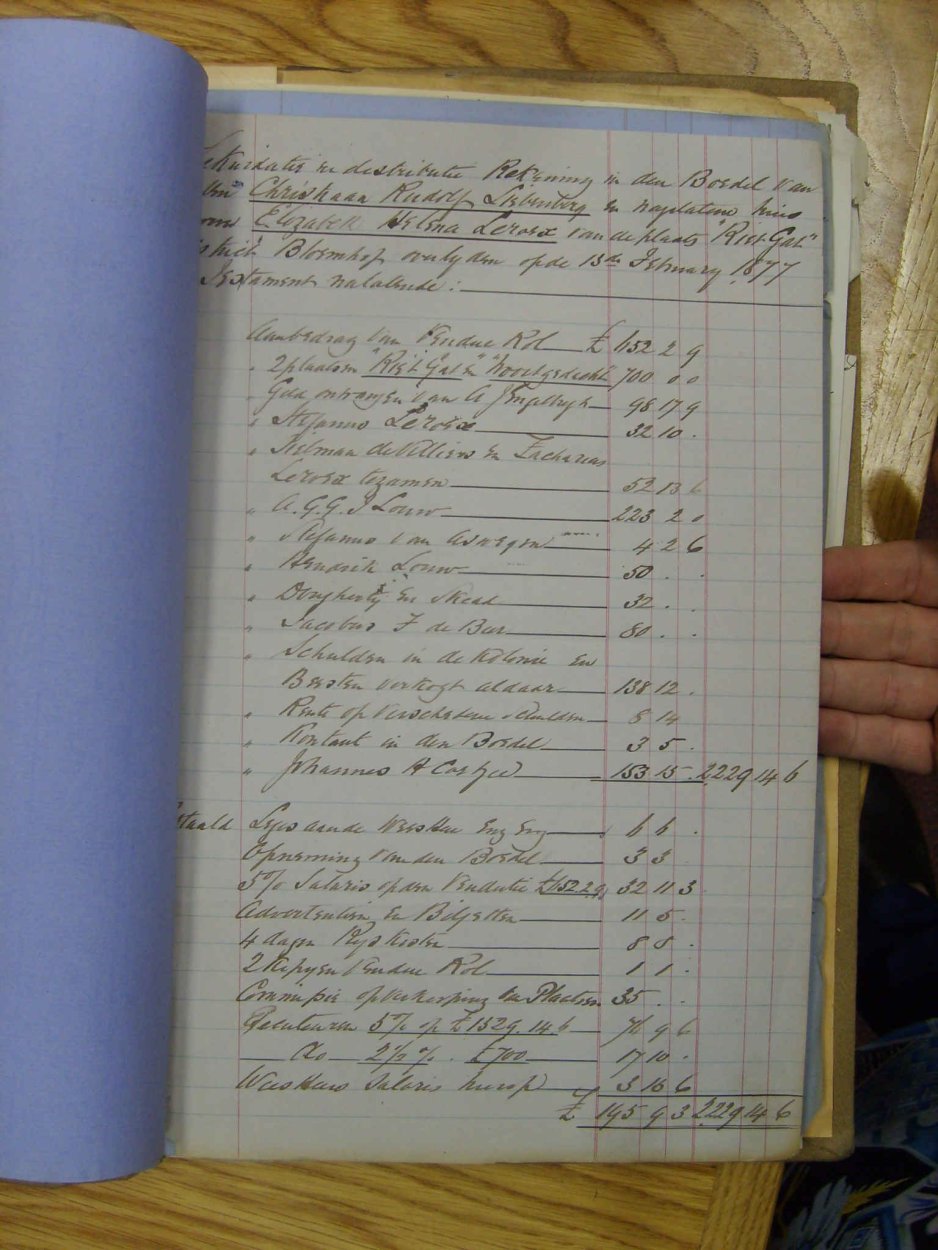 in distributie Rekening in den Boedel van
Christiaan Rudolf Liebenberg en nagelatene huis
Elizabeth Helena Leroex van de plaats "Riet Gat"
Bloemhof overlyden op de 13de February 1877
nalatende:
Aanbedrag van Vendue Rol £ 652 2 9
" 2 plaatsen "Riet Gat" en "Nooitgedacht" 700 0 0
" Geld ontvangen van A J Engelbrgh 98 17 9
" Stefanus Leroex 32 10 .
" Tielman de Villiers en Zacharias
Leroex tezamen 52 13 6
" A. G. G. J Louw 223 2 0
" Stefanus van Aswegen 4 2 6
" Hendrik Louw 50 . .
" Dougherty En Skead 32 . .
" Jacobus F de Beer 80 . .
" Schulden in de Kolonie en
Beesten verkogt aldaar 138 12 .
" Rente op verschedene schulden 8 14
" Kontant in den Boedel 3 5 .
" Johannes H Coetzee 153 15 . 2229 14 6
Leges aan de Weesheer Enz Enz 6 6 .
Opneming van den Boedel 3 3 .
5% Salaris op den Vendutie £652.2.9 32 11 3
Advertentien En Biljetten 11 5 .
4 dagen Rys Kosten 8 8 .
2 Kopyen Vendue Rol 1 1 .
Commissie op verkooping van Plaatsen 35 . .
5% op £1529.14.6 76 9 6
Do 2½% . £700 17 10 .
Weesheers Salaris hierop 3 16 6
£ 195 9 3 2229 14 6